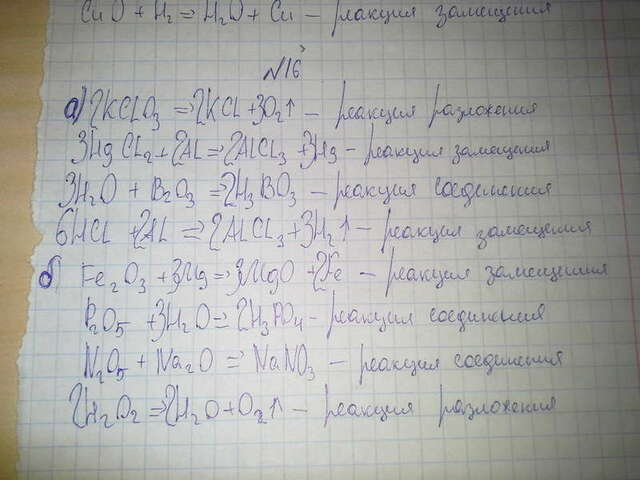 CuO + H₂ ⇒ H₂O + Cu – реакция замещения
№16
а) 2KCLO₃ ⇒ 2KCL + 3O₂↑ – реакция разложения
3HgCL₂ + 2AL ⇒ 2ALCL₃ + 3Hg – реакция замещения
3H₂O + B₂O₃ ⇒ 2H₃BO₃ – реакция соединения
6HCL + 2AL ⇒ 2ALCL₃ + 3H₂↑ – реакция замещения
б) Fe₂O₃ + 3Mg ⇒ 3MgO + 2Fe – реакция замещения
P₂O₅ + 3H₂O ⇒ 2H₃PO₄ – реакция соединения
N₂O₅ + Na₂O ⇒ NaNO₃ – реакция соединения
2H₂O₂ ⇒ 2H₂O + O₂↑ – реакция разложения